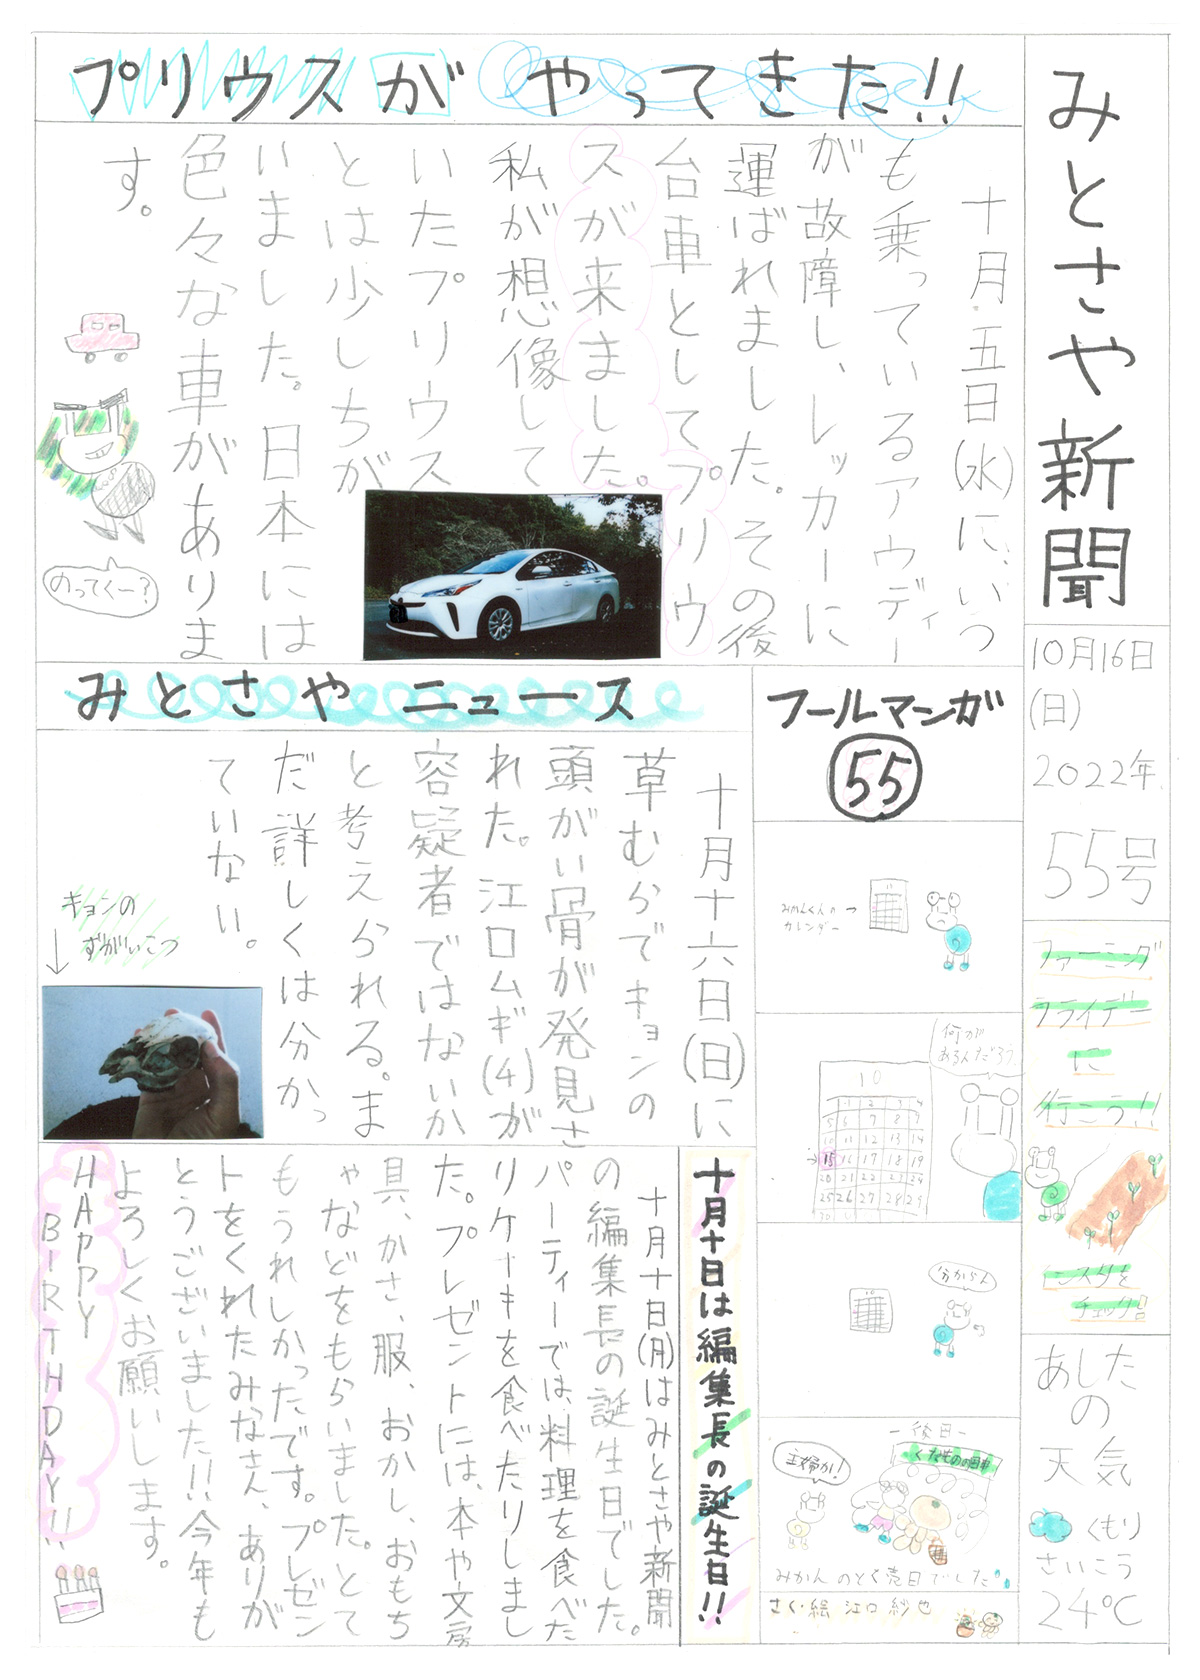 みとさや新聞
10月16日
(日)
2022年
55号
ファーミング
フライデー
に
行こう!!
インスタを
チェック
あしたの
天気
くもり
さいこう
24℃
プリウスがやってきた!!
十月五日(水)に、いつ
も乗っているアウディー
が故障し、レッカーに
運ばれました。その後
台車としてプリウ
スが来ました。
私が想像して
いたプリウス
とは少しちが
いました。日本には
色々な車がありま
す。
のってくー?
フールマンガ
55
みかんくんの
カレンダー
何が
あるんだろう
10
分からん
後日
主婦か!
くだもの
みかんのとく売日でした
さく・絵 江口紗也
みとさやニュース
十月十六日(日)に
草むらでキョンの
頭がい骨が発見さ
れた。江口ムギ(4)が
容疑者ではないか
と考えられる。ま
だ詳しくは分かっ
ていない。
キョンの
ずがいこつ
十月十日は編集長の誕生日!!
十月十日(月)はみとさや新聞
の編集長の誕生日でした。
パーティーでは、料理を食べた
りケーキを食べたりしまし
た。プレゼントには、本や文房
具、かさ、服、おかし、おもち
ゃなどをもらいました。とて
もうれしかったです。プレゼン
トをくれたみなさん、ありが
とうございました!!今年も
よろしくお願いします。
HAPPY
BIRTHDAY!!